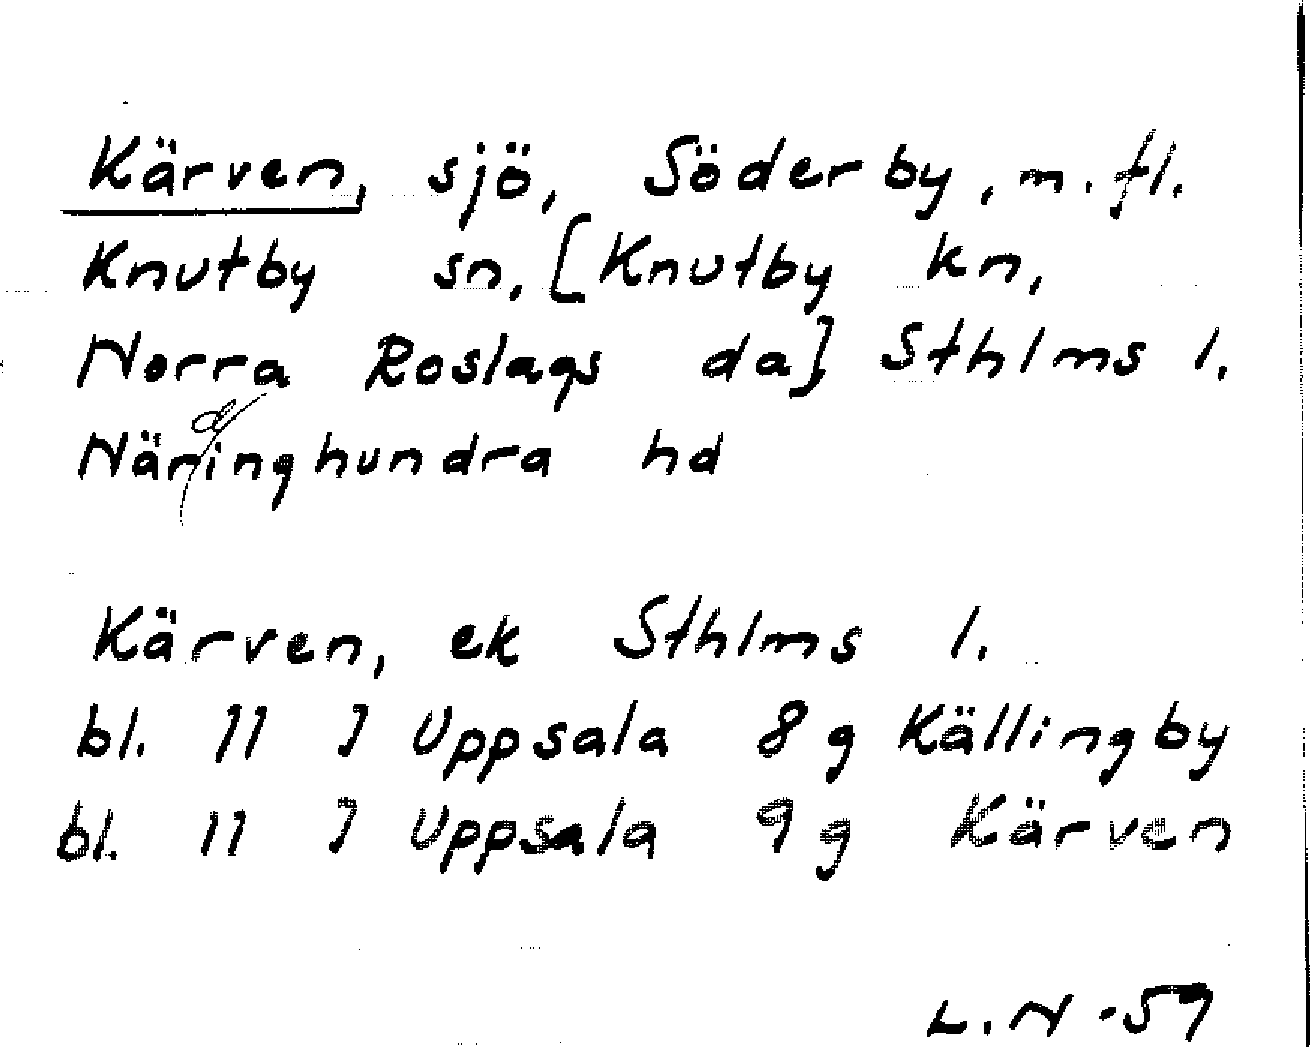 Kärven, sjö, Söderby, m. fl.
Knutby sn, [Knutby kn,
Norra Roslags da] Sthlms l.
Närdinghundra hd
Kärven, ek Sthlms l.
bl. 11 I Uppsala 8 g Källingby
bl. 11 I Uppsala 9 g Kärven
L. N -59